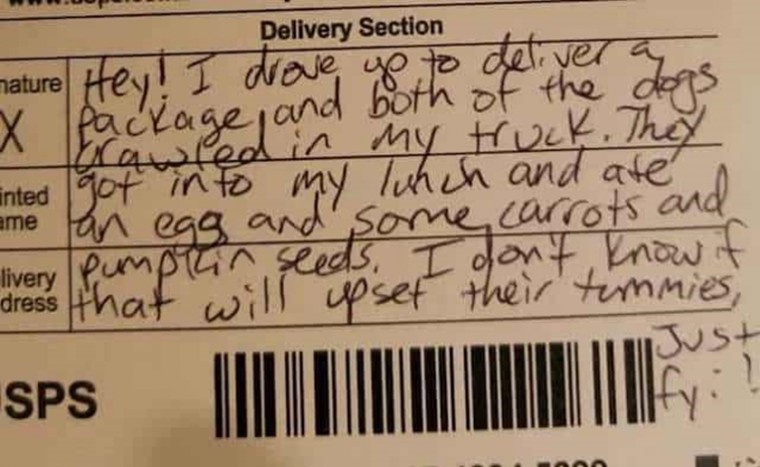 Delivery Section
nature
Hey! I drove up to deliver a
X
package, and both of the dogs
crawled in my truck. They
inted
ame
got into my lunch and ate
an egg and some carrots and
livery
dress
pumpkin seeds. I don't know if
that will upset their tummies,
Just
fyi!
SPS